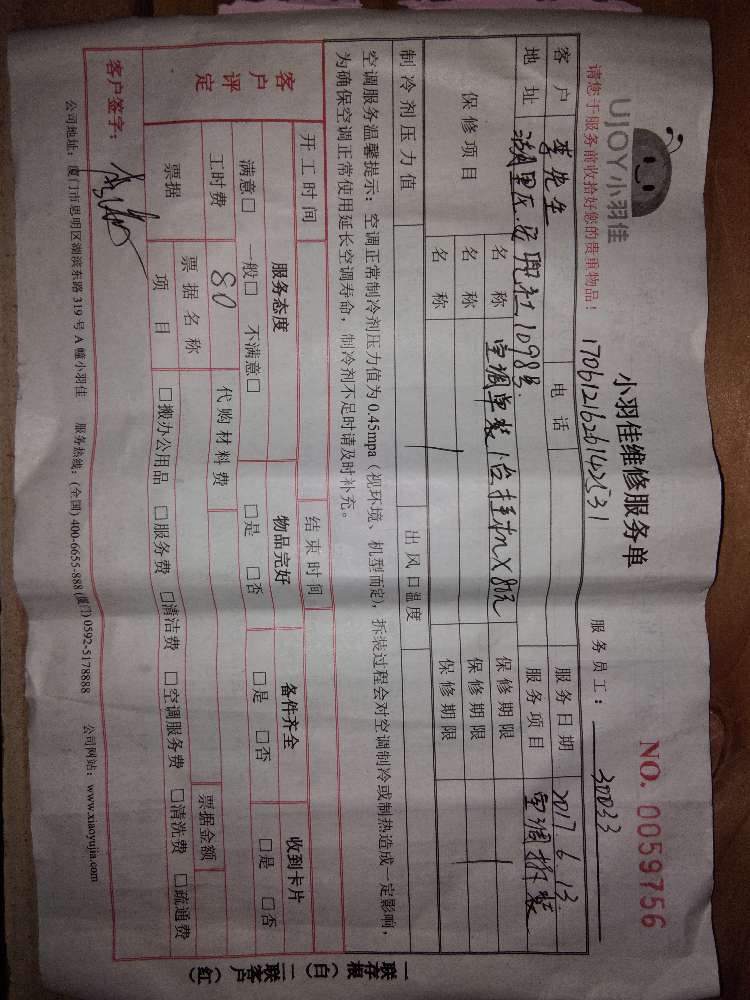 UJOY小羽佳
小羽佳维修服务单
NO. 0059756
请您于服务前收拾好您的贵重物品！
1706121626142531
服务员工：30033
客户 李先生 电话 服务日期 2017.6.13
地址 湖里区 1098号 服务项目 空调拆装
保修项目 名称 空调单装1台挂机X80元 保修期限
名称 保修期限
名称 保修期限
制冷剂压力值 出风口温度
空调服务温馨提示：空调正常制冷剂压力值为0.45mpa（视环境、机型而定），拆装过程会对空调制冷或制热造成一定影响，
为确保空调正常使用延长空调寿命，制冷剂不足时请及时补充。
开工时间 结束时间
客户评定 服务态度 物品完好 备件齐全 收到卡片
满意□ 一般□ 不满意□ □是 □否 □是 □否 □是 □否
工时费 80 代购材料费
票据 票据名称 票据金额
项目 □搬办公用品 □服务费 □清洁费 □空调服务费 □清洗费 □疏通费
客户签字：
公司地址：厦门市思明区湖滨东路319号A幢小羽佳 服务热线：(全国) 400-6655-888 (厦门) 0592-5178888 公司网站：www.xiaoyujia.com
一联存根（白）二联客户（红）